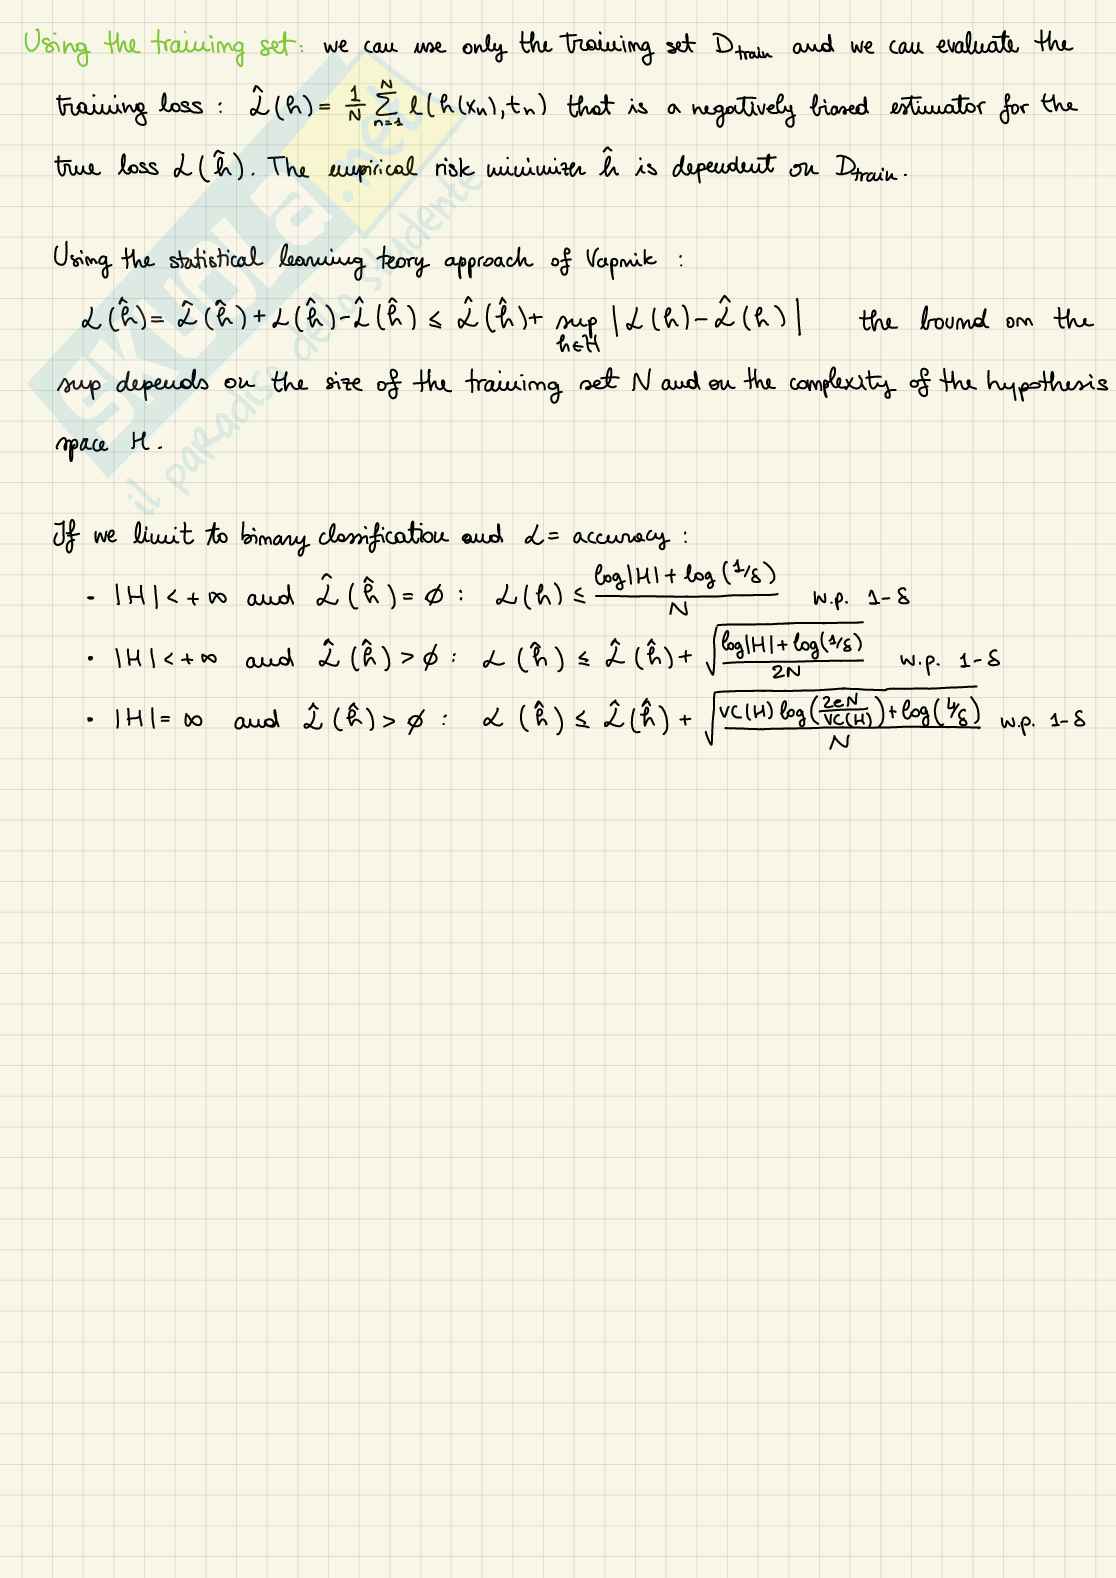 Using the training set: we can use only the training set D_train and we can evaluate the
training loss : L̂(h) = 1/N Σ_{n=1}^{N} l(h(x_n), t_n) that is a negatively biased estimator for the
true loss L(ĥ). The empirical risk minimizer ĥ is dependent on D_train.
Using the statistical learning teory approach of Vapnik :
L(ĥ) = L̂(ĥ) + L(ĥ) - L̂(ĥ) ≤ L̂(ĥ) + sup_{h∈H} |L(h) - L̂(h)| the bound on the
sup depends on the size of the training set N and on the complexity of the hypothesis
space H.
If we limit to binary classification and L = accuracy :
• |H| < +∞ and L̂(ĥ) = ∅ : L(h) ≤ (log|H| + log(1/δ))/N w.p. 1-δ
• |H| < +∞ and L̂(ĥ) > ∅ : L(ĥ) ≤ L̂(ĥ) + √((log|H| + log(1/δ))/2N) w.p. 1-δ
• |H| = ∞ and L̂(ĥ) > ∅ : L(ĥ) ≤ L̂(ĥ) + √((VC(H) log(2eN/VC(H)) + log(4/δ))/N) w.p. 1-δ
SKUOLA.net
il paradiso dello studente